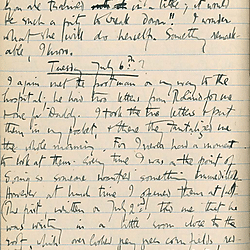 you are tired out in a title; it would
be such a pity to break down!! I wonder
what she will do herself. Something remark-
able, I know.
Tuesday July 6th
I again met the postman on my way to the
hospital; he had two letters from Roland for me
one for Daddy. I took the two letters & put
them in my pocket, & there they tantalized me
the whole morning. For I never had a moment
to look at them. Every time I was on the point of
so someone wanted something immediately.
However at lunch time I opened them at last.
The first, written on July 2nd, tells me that he
was writing in a little room close to the
roof, which overlooks green corn fields